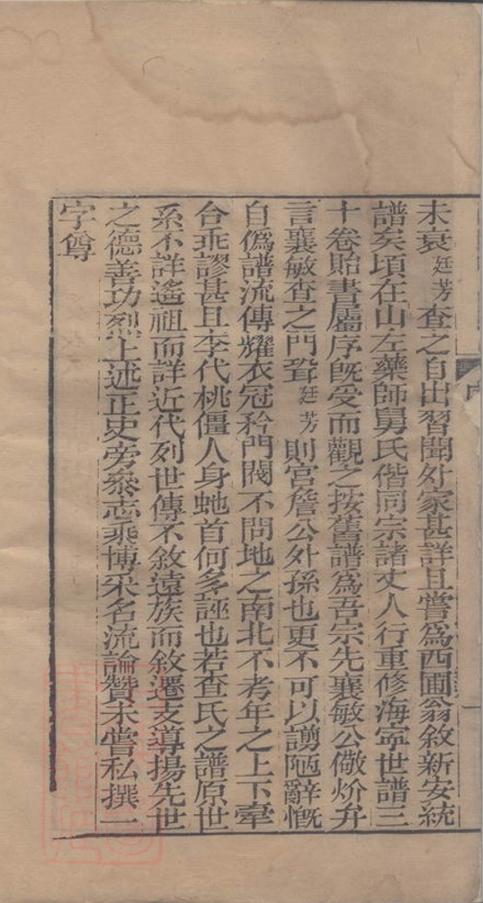 未衰廷芳查之自出習聞外家甚詳且嘗爲西圃翁敘新安統
譜矣頃在山左藥師舅氏偕同宗諸丈人行重修海寧世譜三
十卷貽書屬序旣受而觀之按舊譜爲吾宗先襄敏公儆炌弁
言襄敏查之門聓廷芳則宮詹公外孫也更不可以謭陋辭慨
自僞譜流傳耀衣冠矜門閥不問地之南北不考年之上下牽
合乖謬甚且李代桃僵人身虵首何多誣也若查氏之譜原世
系不詳遙祖而詳近代列世傳不敘遠族而敘遷支導揚先世
之德善功烈上述正史旁叅志乘博采名流論贊未嘗私撰一
字尊
序
一